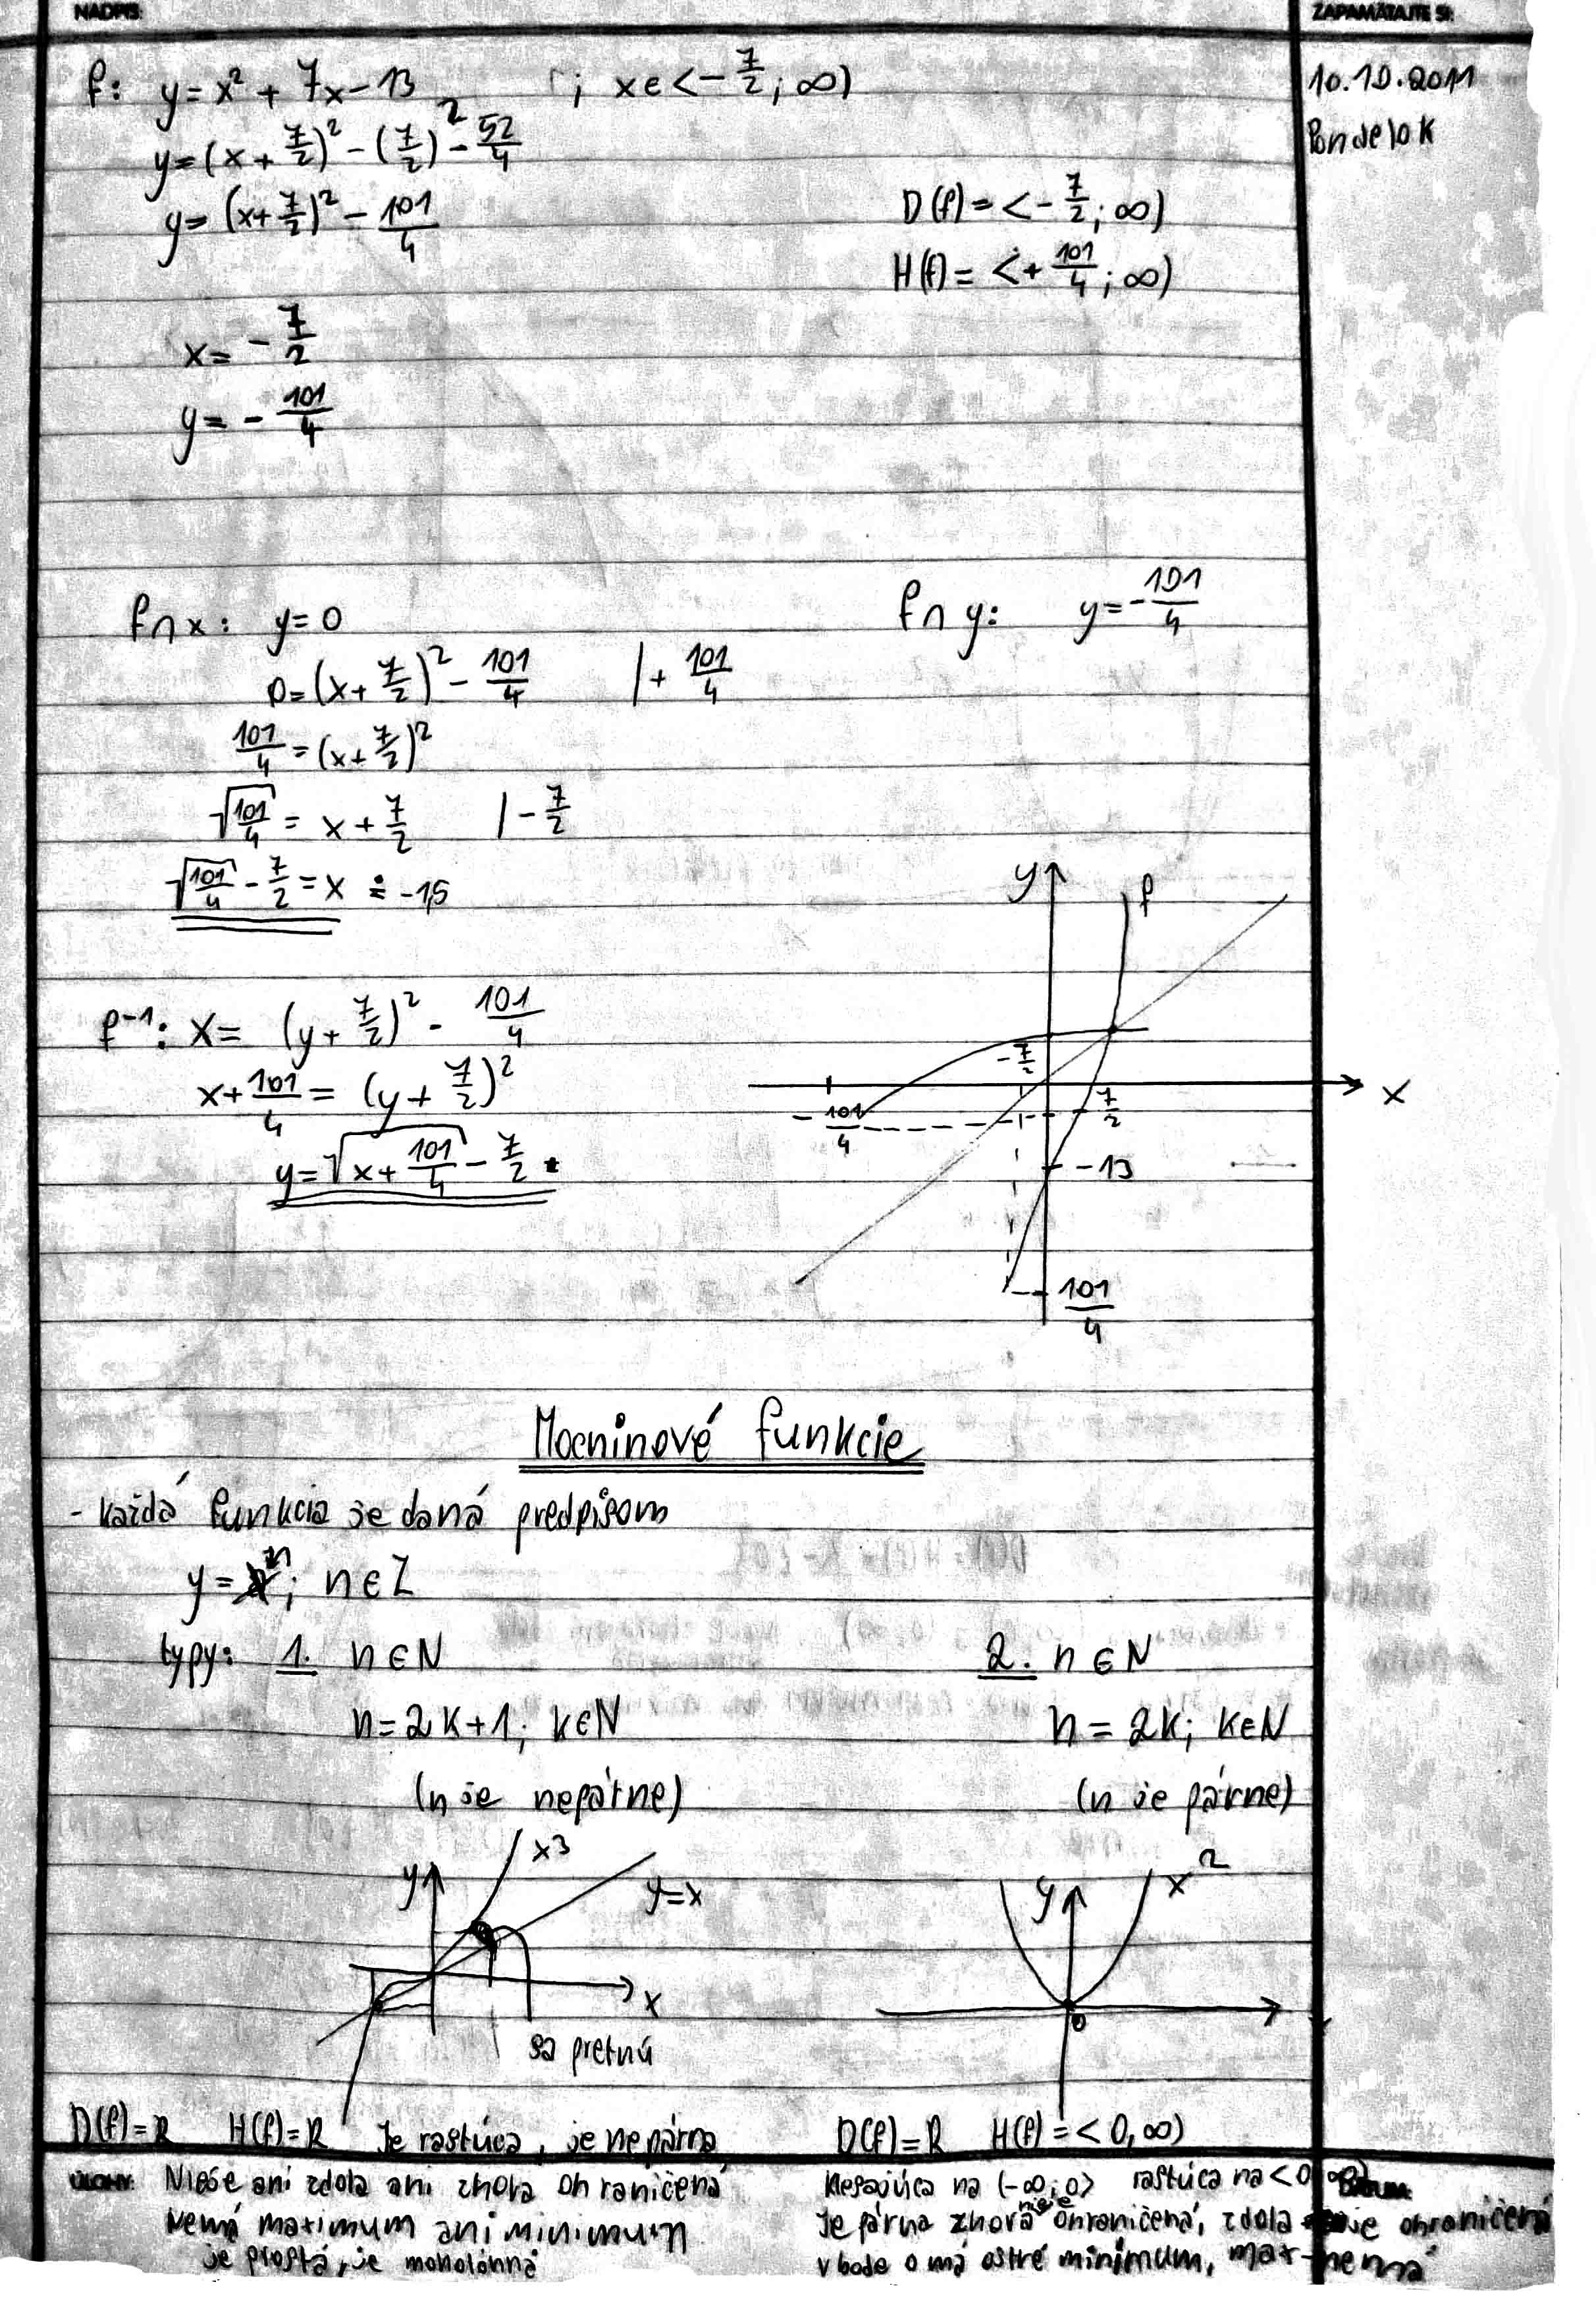 NADPIS: ZAPAMÄTAJTE SI:
10.10.2011
Pondelok
f: y = x² + 7x - 13 ; x∈<-7/2; ∞)
y = (x + 7/2)² - (7/2)² - 52/4
y = (x + 7/2)² - 101/4
D(f) = <-7/2; ∞)
H(f) = <+ 101/4; ∞)
x = -7/2
y = -101/4
f∩x: y = 0
0 = (x + 7/2)² - 101/4 | + 101/4
101/4 = (x + 7/2)²
√101/4 = x + 7/2 | - 7/2
√101/4 - 7/2 = x ≐ -1,5
f∩y: y = -101/4
f⁻¹: x = (y + 7/2)² - 101/4
x + 101/4 = (y + 7/2)²
y = √x + 101/4 - 7/2
y
f
-7/2
x
-101/4
-7/2
-13
101/4
Mocninové funkcie
- každá funkcia je daná predpisom
y = xⁿ; n∈Z
typy: 1. n∈N
n = 2k+1; k∈N
(n je nepárne)
2. n∈N
n = 2k; k∈N
(n je párne)
y
x3
y=x
x
sa pretnú
y
x²
0
D(f) = R H(f) = R Je rastúca, je nepárna
ÚLOHY: Nieje ani zdola ani zhora ohraničená
Nemá maximum ani minimum
je prostá, je monotónna
D(f) = R H(f) = <0, ∞)
Klesajúca na (-∞; 0> rastúca na <0, ∞)
Je párna zhora nieje ohraničená, zdola je ohraničená
v bode 0 má ostré minimum, max nemá